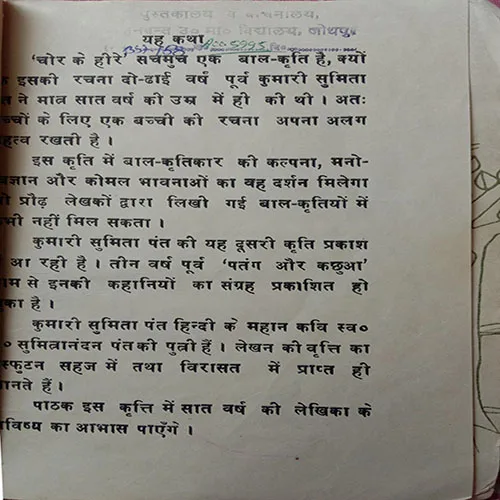 पुस्तकालय व वाचनालय,
यह कथा
'चोर के हीरे' सचमुच एक बाल-कृति है, क्यों
इसकी रचना दो-ढाई वर्ष पूर्व कुमारी सुमिता
ने मात्र सात वर्ष की उम्र में ही की थी । अतः
च्चों के लिए एक बच्ची की रचना अपना अलग
हत्व रखती है ।
इस कृति में बाल-कृतिकार की कल्पना, मनो-
ज्ञान और कोमल भावनाओं का वह दर्शन मिलेगा
प्रौढ़ लेखकों द्वारा लिखी गई बाल-कृतियों में
भी नहीं मिल सकता ।
कुमारी सुमिता पंत की यह दूसरी कृति प्रकाश
आ रही है । तीन वर्ष पूर्व 'पतंग और कछुआ'
ाम से इनकी कहानियों का संग्रह प्रकाशित हो
ुका है ।
कुमारी सुमिता पंत हिन्दी के महान कवि स्व०
० सुमित्रानंदन पंत की पुत्री हैं । लेखन की वृत्ति का
स्फुटन सहज में तथा विरासत में प्राप्त ही
ानते हैं ।
पाठक इस कृत्ति में सात वर्ष की लेखिका के
विष्य का आभास पाएँगे ।